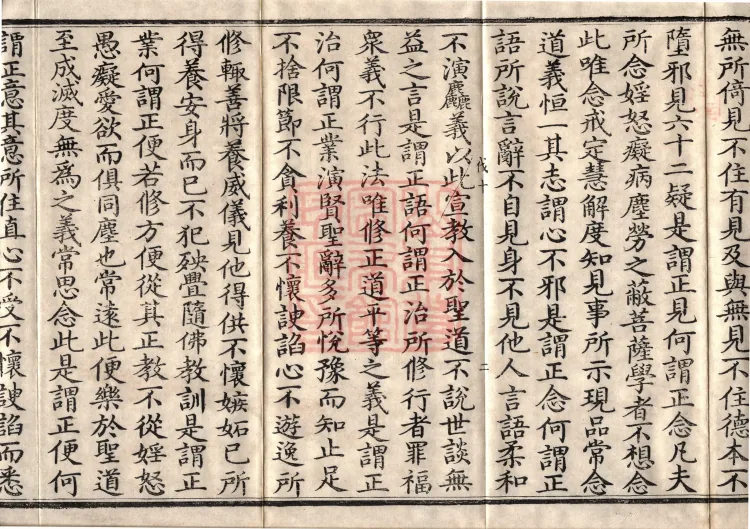 無所倚見不住有見及與無見不住德本不
墮邪見六十二疑是謂正見何謂正念凡夫
所念婬怒癡病塵勞之蔽菩薩學者不想念
此唯念戒定慧解度知見事所示現品常念
道義恒一其志謂心不邪是謂正念何謂正
語所說言辭不自見身不見他人言語柔和
伐十 二
不演麤義以此宣教入於聖道不說世談無
益之言是謂正語何謂正治所修行者罪福
衆義不行此法唯修正道平等之義是謂正
治何謂正業演賢聖辭多所悅豫而知止足
不捨限節不貪利養不懷諛諂心不遊逸所
修輙善將養威儀見他得供不懷嫉妬已所
得養安身而已不犯殃舋隨佛教訓是謂正
業何謂正便若修方便從其正教不從婬怒
愚癡愛欲而俱同塵也常遠此便樂於聖道
至成滅度無為之義常思念此是謂正便何
謂正意其意所住直心不受不懷諛諂而悉